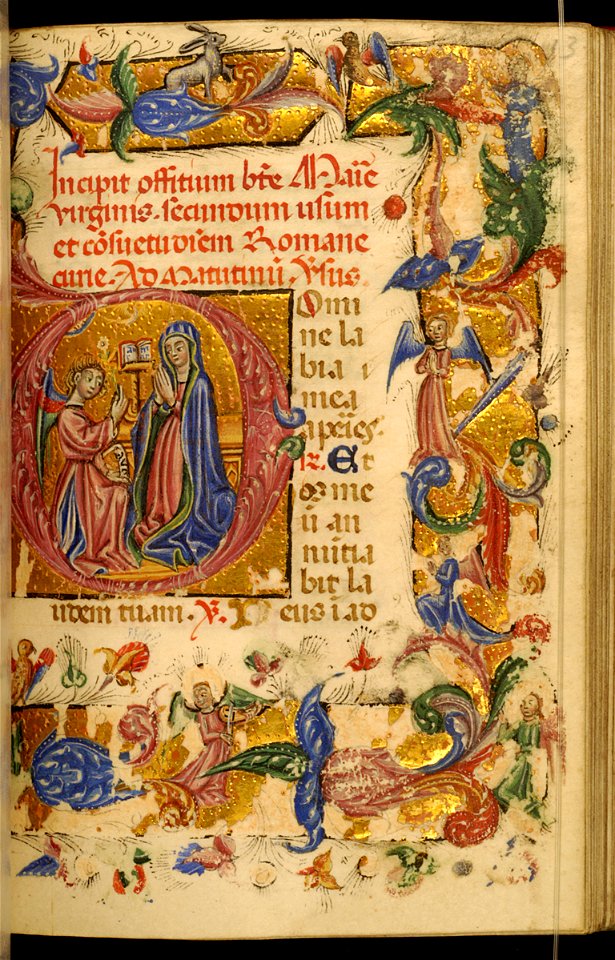 Incipit offitium bt̄e Maīe
virginis. secundum usūm
et cōsuetudiēm Romane
curie. Ad Matutinū. V̄sus.
Domi
ne la
bia
mea
aperies.
R. Et
os me
ū an
nūtia
bit la
udem tuam. V. Deus i ad